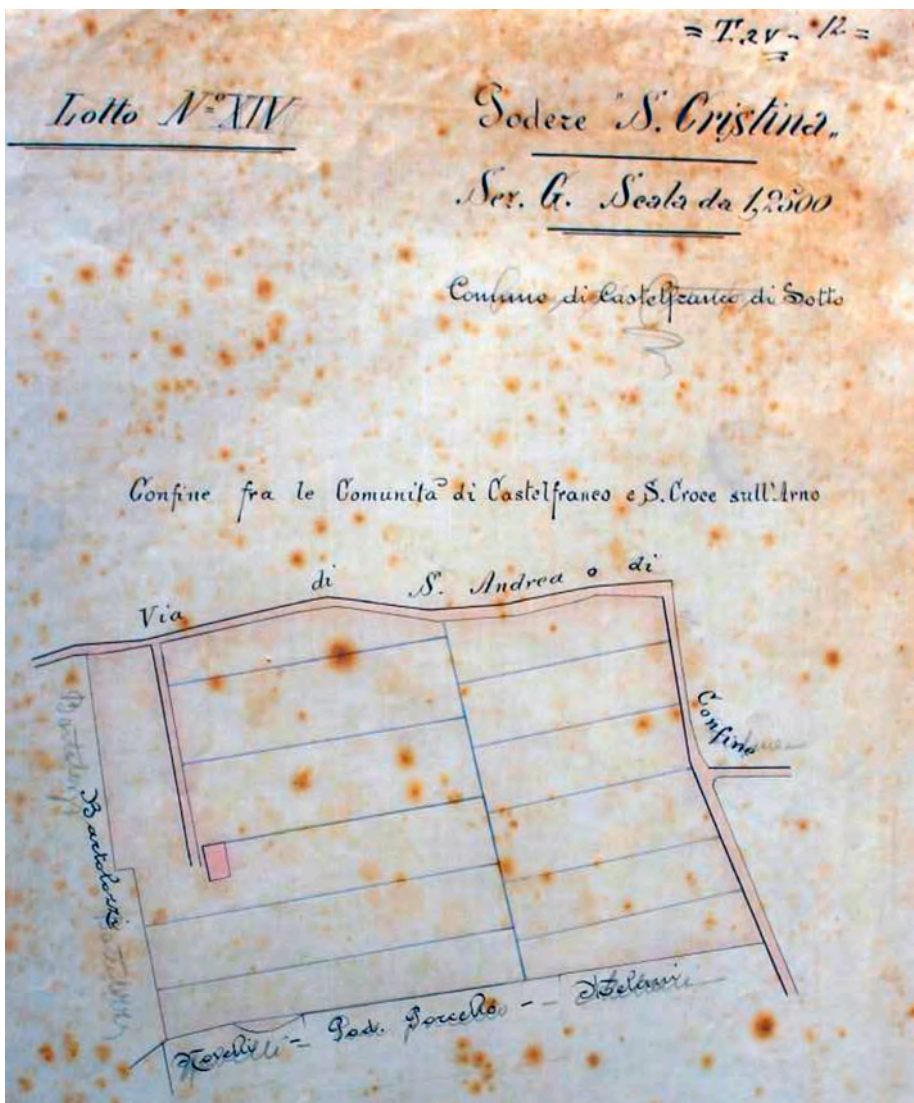 Lotto N.º XIV
Podere "S. Cristina„
Sez. G. Scala da 1,2500
Comune di Castelfranco di Sotto
Confine fra le Comunità di Castelfranco e S. Croce sull'Arno
Via di S. Andrea o di Confine
Bartolozzi
Pod. Porcello